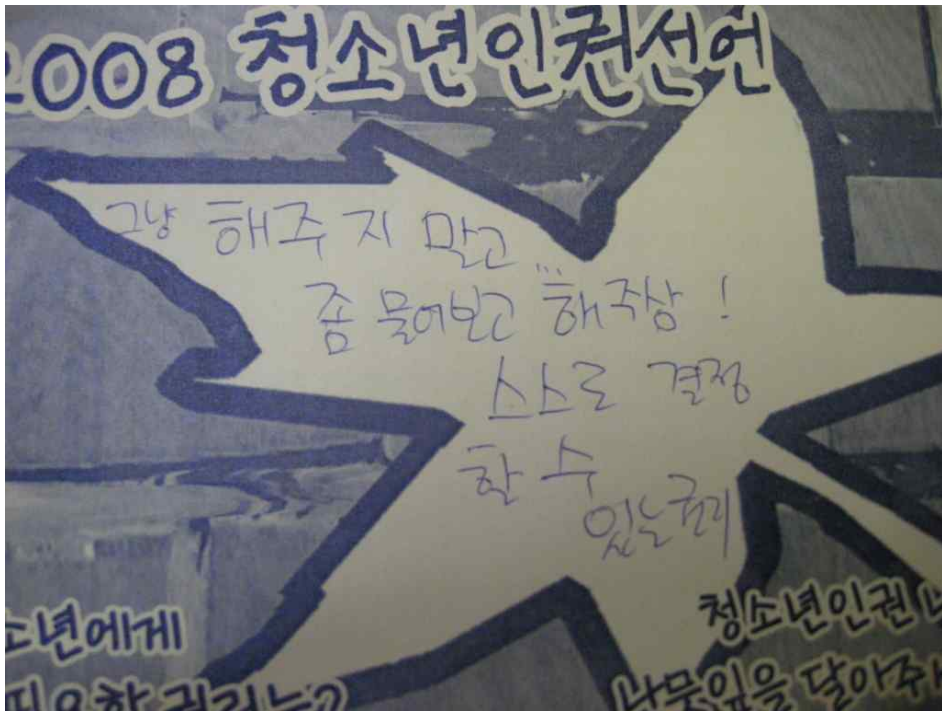 2008 청소년인권선언
그냥 해주지 말고...
좀 물어보고 해주삼!
스스로 결정
할 수
있는권리
소년에게
필요한 권리는?
청소년인권 나
나뭇잎을 달아주